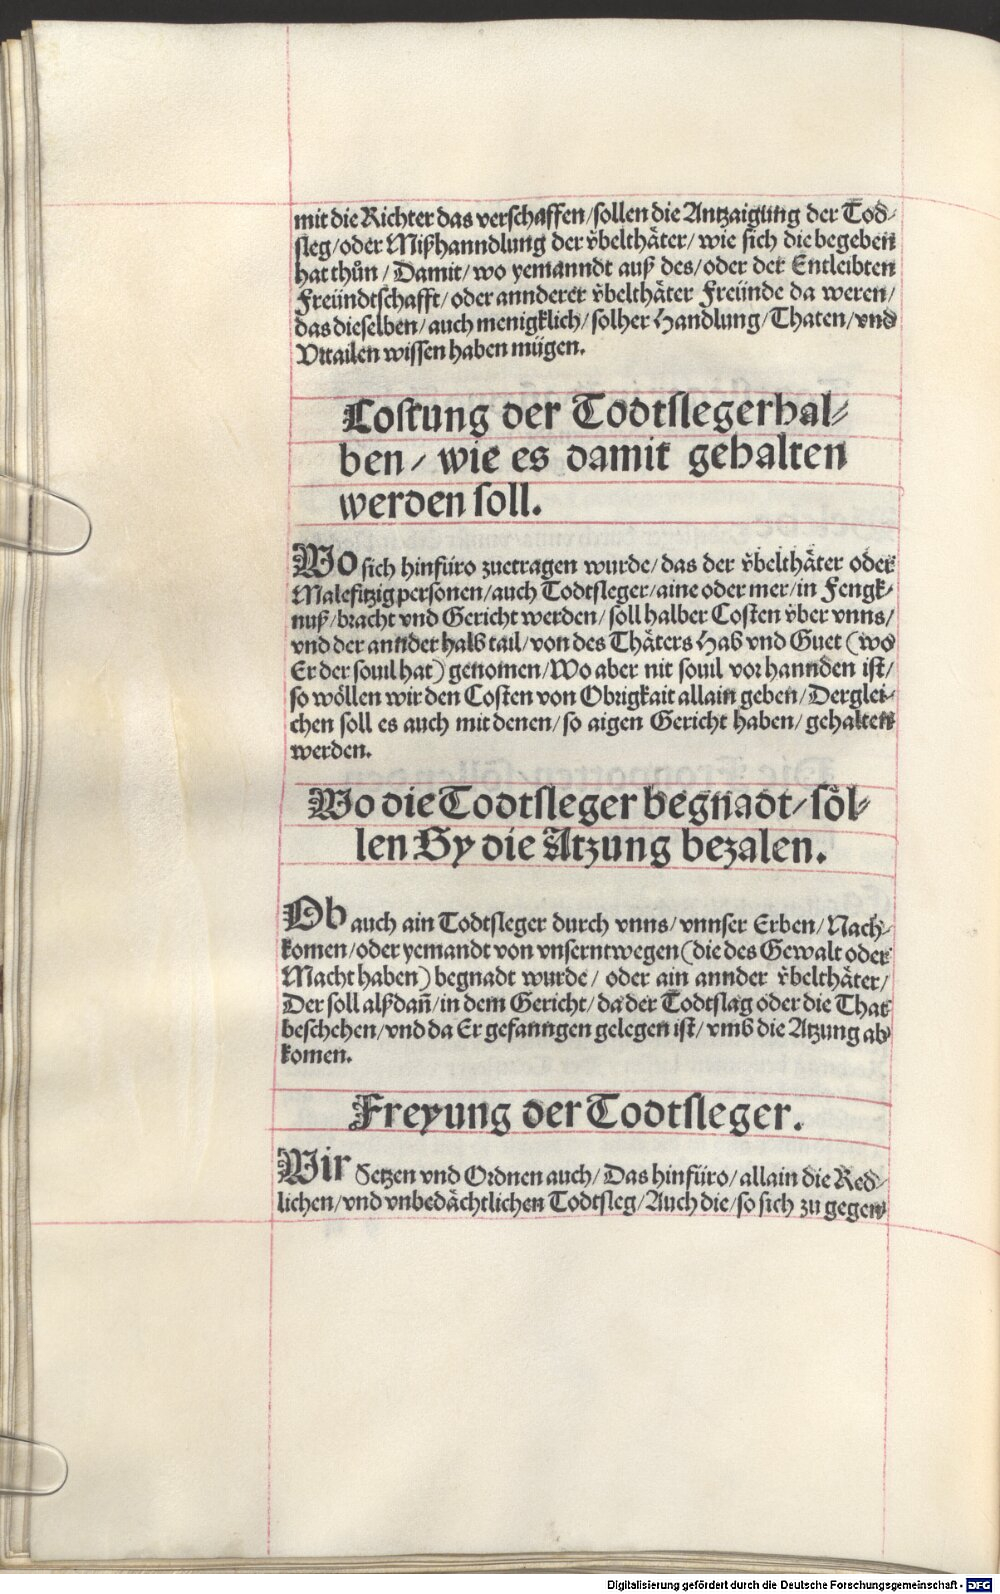 mit die Richter das verschaffen/sollen die Antzaigung der Tod⸗
sleg/oder Mißhanndlung der v̈belthäter/wie sich die begeben
hat thůn/Damit/wo yemanndt auß des/oder der Entleibten
Freündtschafft/oder annderer v̈belthäter Freünde da weren/
das dieselben/auch menigklich/solher Handlung/Thaten/vnd
Vrtailen wissen haben mügen.
Costung der Todtslegerhal⸗
ben/wie es damit gehalten
werden soll.
WO sich hinfüro zuetragen wurde/das der v̈belthäter oder
Malefitzig personen/auch Todtsleger/aine oder mer/in Fengk⸗
nuß/bracht vnd Gericht werden/soll halber Costen v̈ber vnns/
vnd der annder halb tail/von des Thäters Hab vnd Guet (wo
Er der souil hat) genomen/Wo aber nit souil vorhannden ist/
so wöllen wir den Costen von Obrigkait allain geben/Derglei⸗
chen soll es auch mit denen/so aigen Gericht haben/gehalten
werden.
Wo die Todtsleger begnadt/söl⸗
len Sy die Atzung bezalen.
Ob auch ain Todtsleger durch vnns/vnnser Erben/Nach⸗
komen/oder yemandt von vnserntwegen (die des Gewalt oder
Macht haben) begnadt wurde/oder ain annder v̈belthäter/
Der soll alßdañ/in dem Gericht/da der Todtslag oder die That
beschehen/vnd da Er gefanngen gelegen ist/vmb die Atzung ab⸗
komen.
Freyung der Todtsleger.
Wir Setzen vnd Ordnen auch/Das hinfüro/allain die Red⸗
lichen/vnd vnbedächtlichen Todtsleg/Auch die/so sich zu gegen⸗
Digitalisierung gefördert durch die Deutsche Forschungsgemeinschaft - DFG